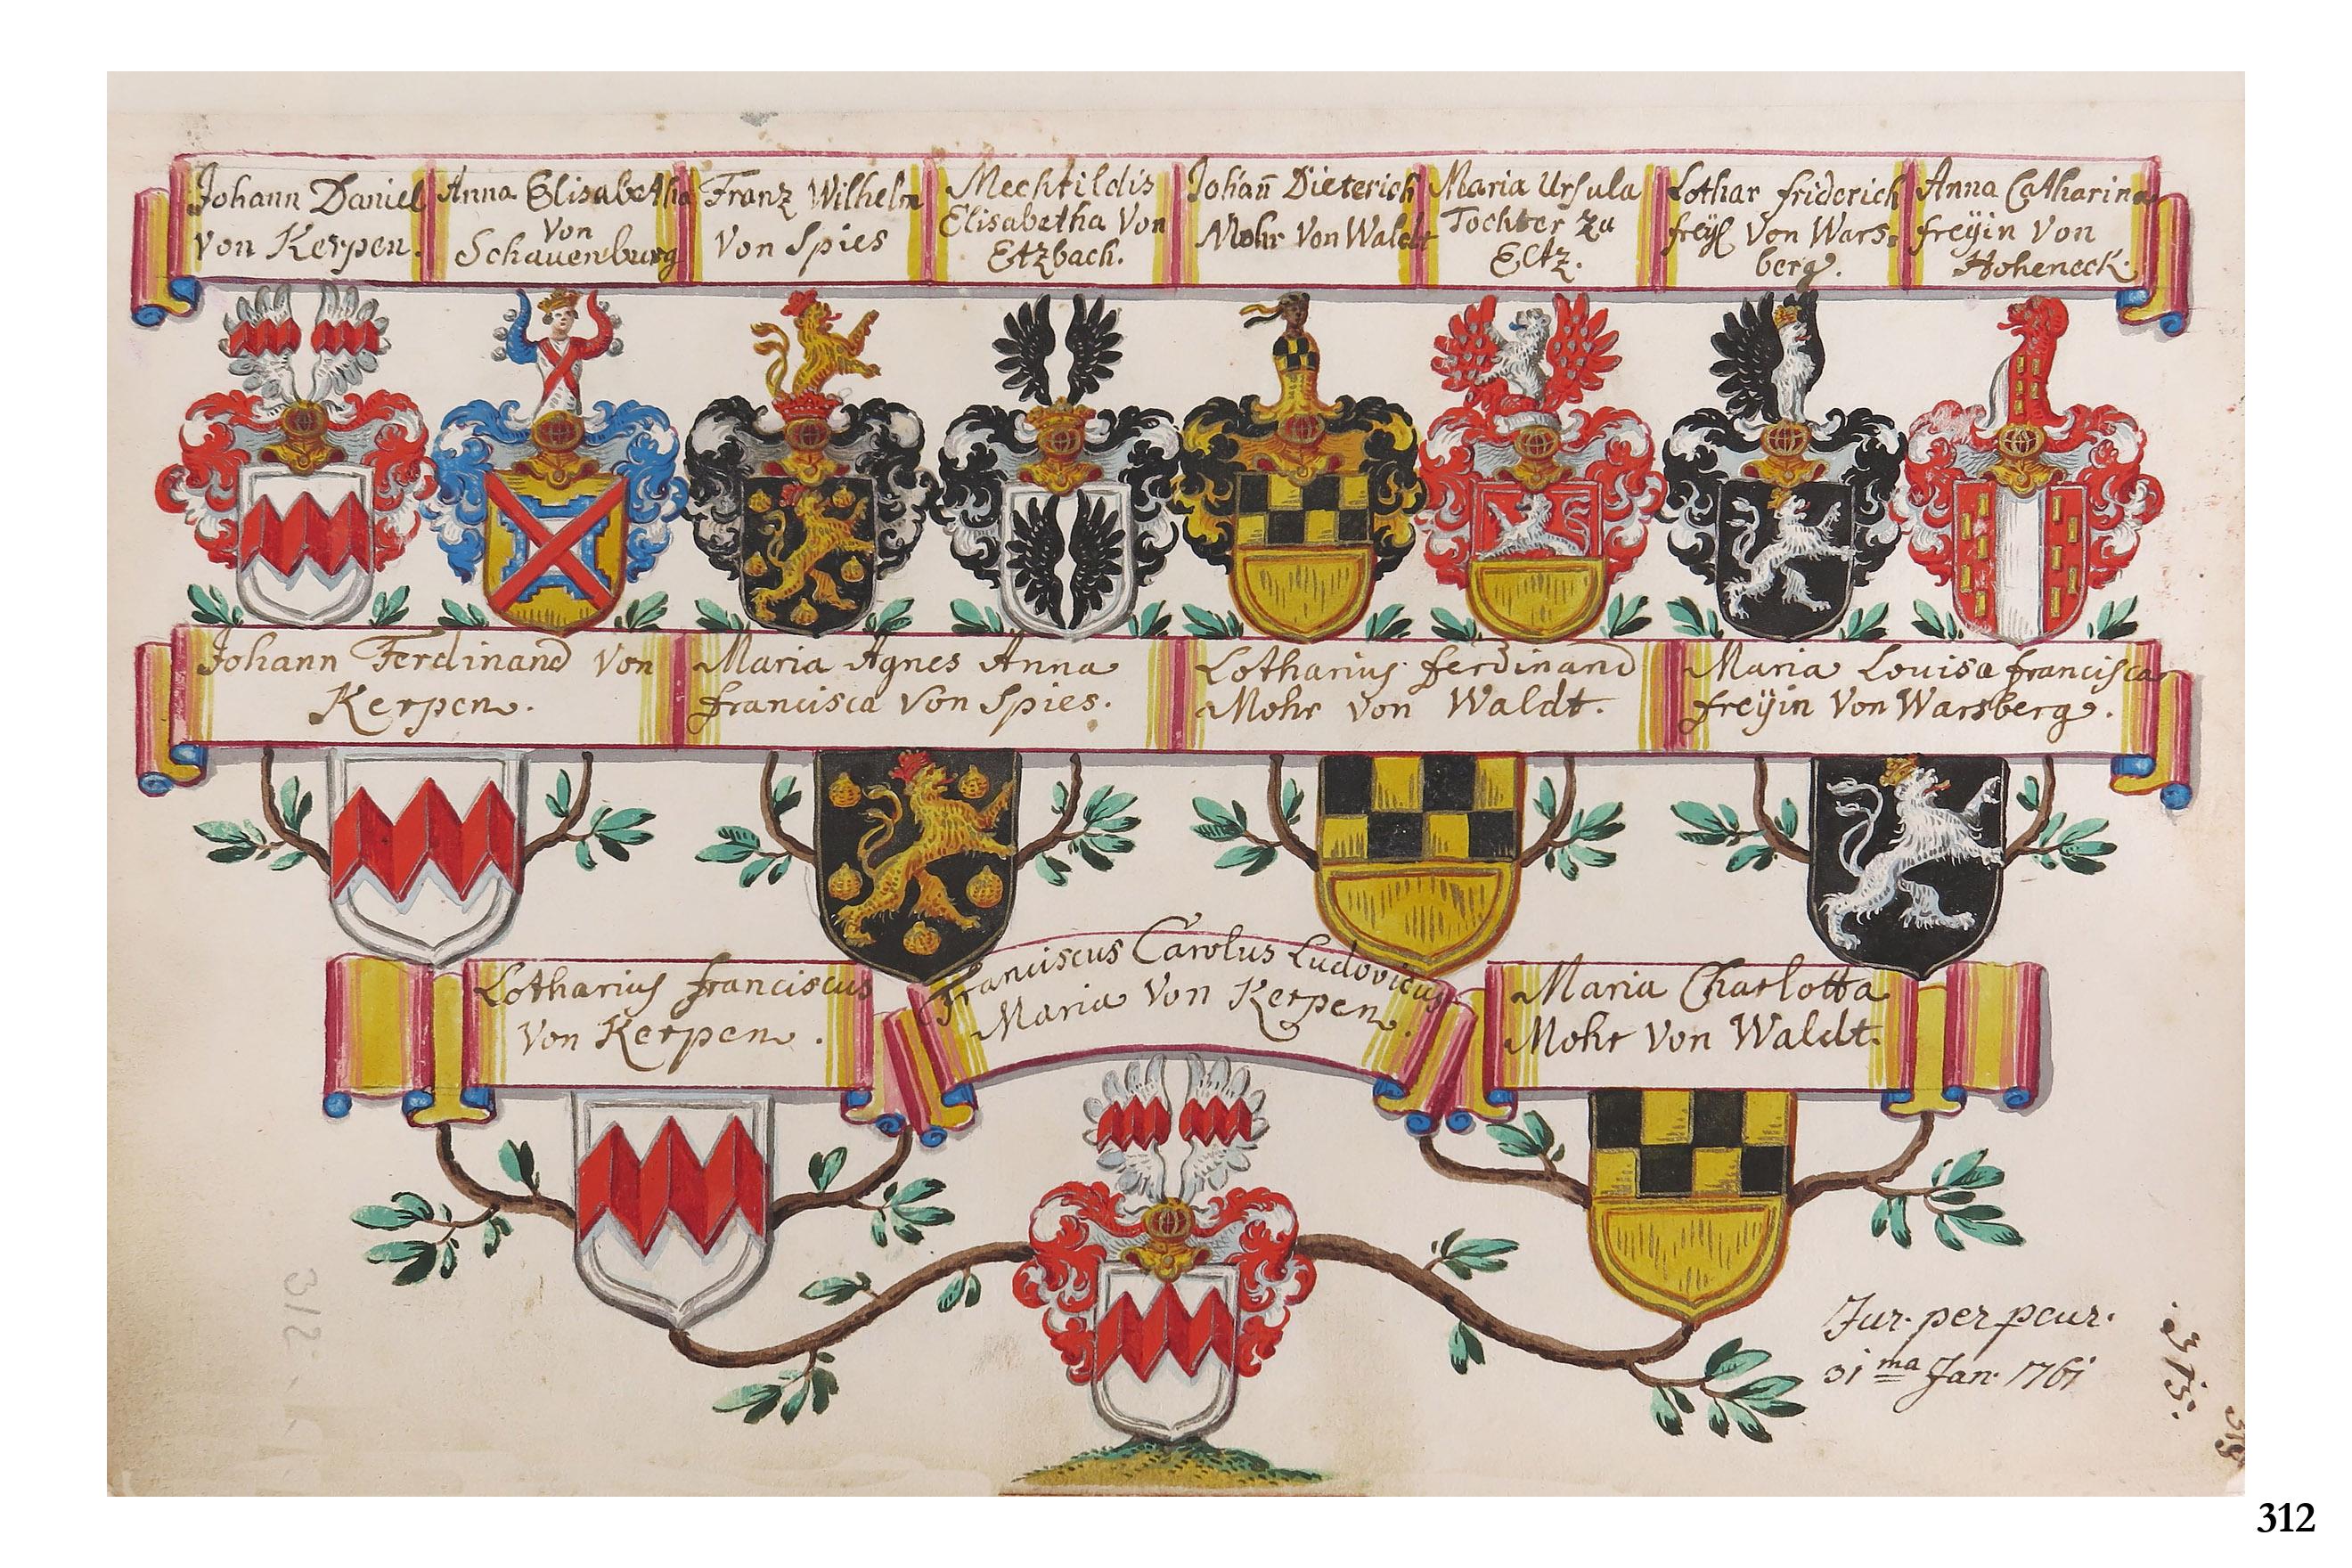 Johann Daniel
von Kerpen.
Anna Elisabetha
von
Schauenburg
Franz Wilhelm
von Spies
Mechtildis
Elisabetha von
Etzbach.
Johan̄ Dieterich
Mohr von Waldt
Maria Ursula
Tochter zu
Eltz.
Lothar friderich
freÿħ von Wars-
berg.
Anna Catharina
freÿin von
Hoheneck.
Johann Ferdinand von
Kerpen.
Maria Agnes Anna
francisca von Spies.
Lotharius ferdinand
Mohr von Waldt.
Maria Louisa francisca
freÿin von Warsberg.
Lotharius franciscus
von Kerpen.
Franciscus Carolus Ludovicus
Maria von Kerpen.
Maria Charlotta
Mohr von Waldt.
Jur. per pcur.
31ma Jan. 1761
312
315.
312